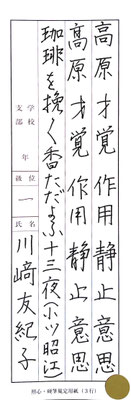 高原才覚作用静止意思
高原才覚作用静止意思
珈琲を挽く香ただよふ十三夜(小ツ昭江)
学校
支部
年
級位
一
氏名
川﨑友紀子
初心・硬筆規定用紙(3行)